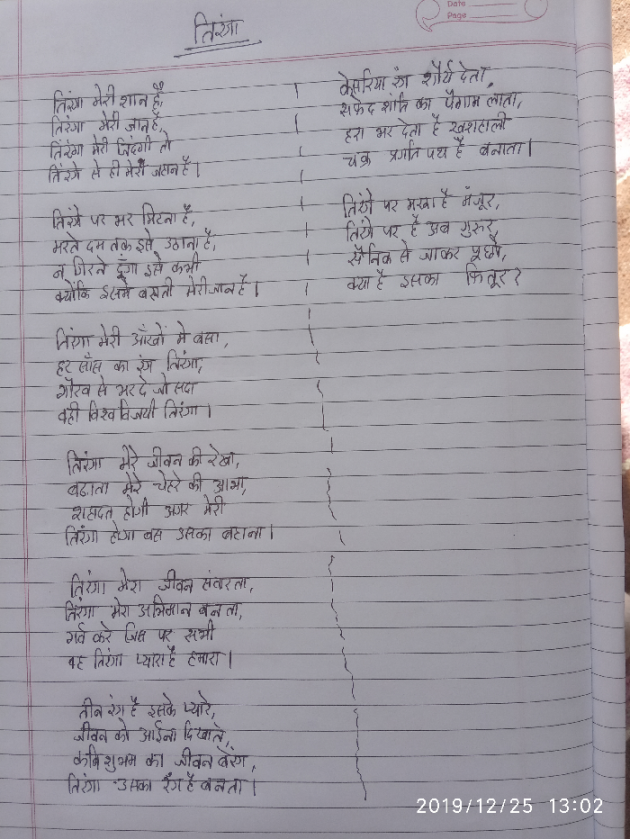 Date
Page
तिरंगा
तिरंगा मेरी शान है,
तिरंगा मेरी जान है,
तिरंगा मेरी जिंदगी तो
तिरंगे से ही मेरी जहान है।
तिरंगे पर मर मिटना है,
मरते दम तक इसे उठाना है,
न गिरने दूँगा इसे कभी
क्योंकि इसमें बसती मेरी जान है।
तिरंगा मेरी आँखों मे बसा,
हर साँस का रंग तिरंगा,
गौरव से भर दे जो सदा
वही विश्व विजयी तिरंगा।
तिरंगा मेरे जीवन की रेखा,
बढाता मेरे चेहरे की आभा,
शहादत होगी अगर मेरी
तिरंगा होगा बस उसका बहाना।
तिरंगा मेरा जीवन संवारता,
तिरंगा मेरा अभिमान बनता,
गर्व करे जिस पर सभी
वह तिरंगा प्यारा है हमारा।
तीन रंग है इसके प्यारे,
जीवन को आईना दिखाते,
कवि शुभम का जीवन बेरंग,
तिरंगा उसका रंग है बनता।
केसरिया रंग शौर्य देता,
सफेद शांति का पैगाम लाता,
हरा भर देता है खुशहाली
चक्र प्रगति पथ है बनाता।
तिरंगे पर मरना है मंजूर,
तिरंगे पर है अब गुरुर,
सैनिक से जाकर पूछो,
क्या है इसका फितूर?
2019/12/25 13:02